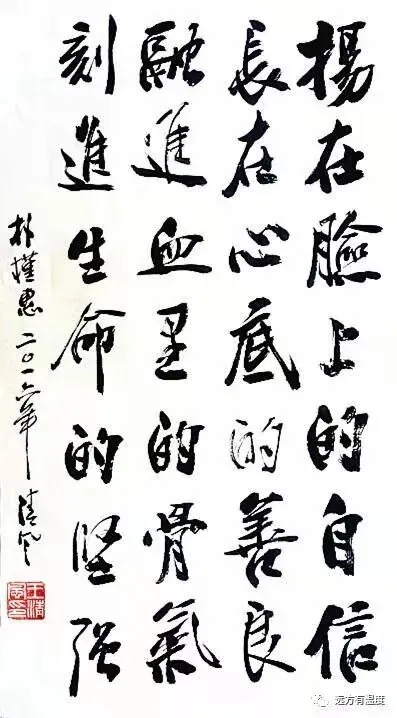 揚在臉上的自信
長在心底的善良
融進血里的骨氣
刻進生命的堅强
朴槿惠二〇一六年清风
远方有温度